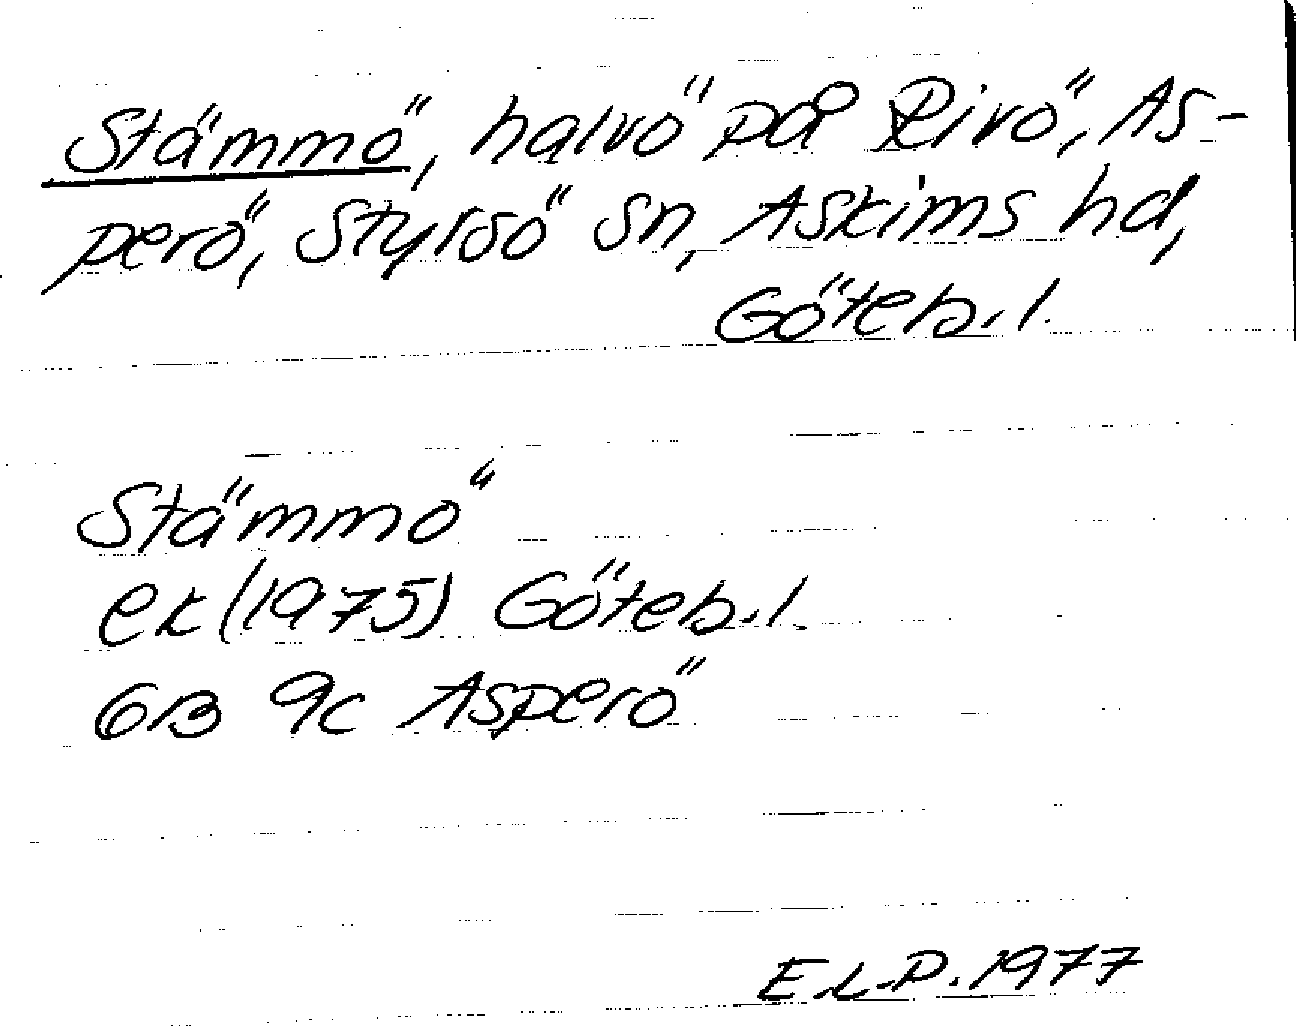 Stämmö, halvö på Rivö, As-
perö, Styrsö sn, Askims hd,
Göteb. l.
Stämmö
ek (1975) Göteb. l.
6B 9c Asperö
E.L.P. 1977